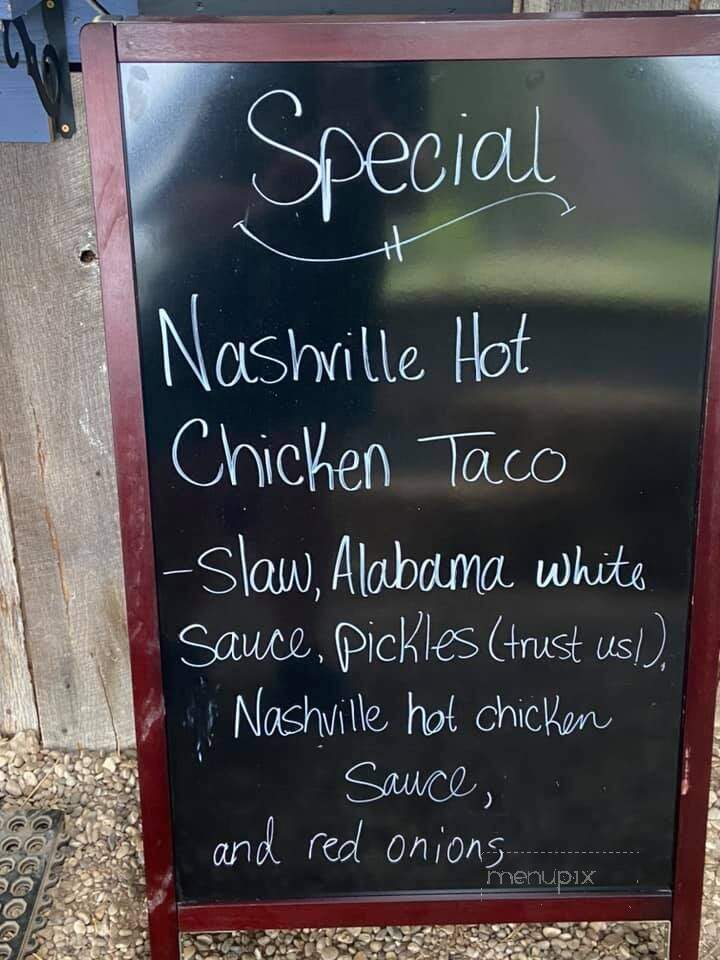 Special
Nashville Hot
Chicken Taco
-Slaw, Alabama white
Sauce, pickles (trust us!),
Nashville hot chicken
Sauce,
and red onions
menupix